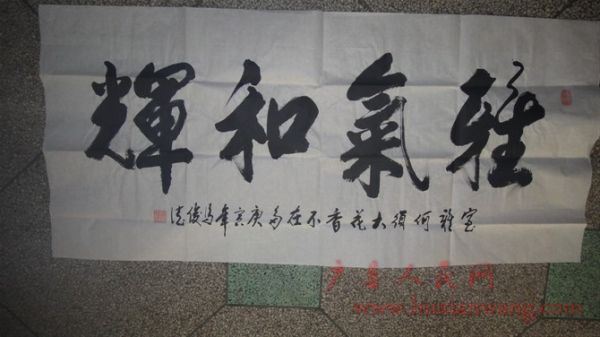 雅氣和輝
室雅何須大花香不在多庚寅年
户县人民网
www.huxianwang.com